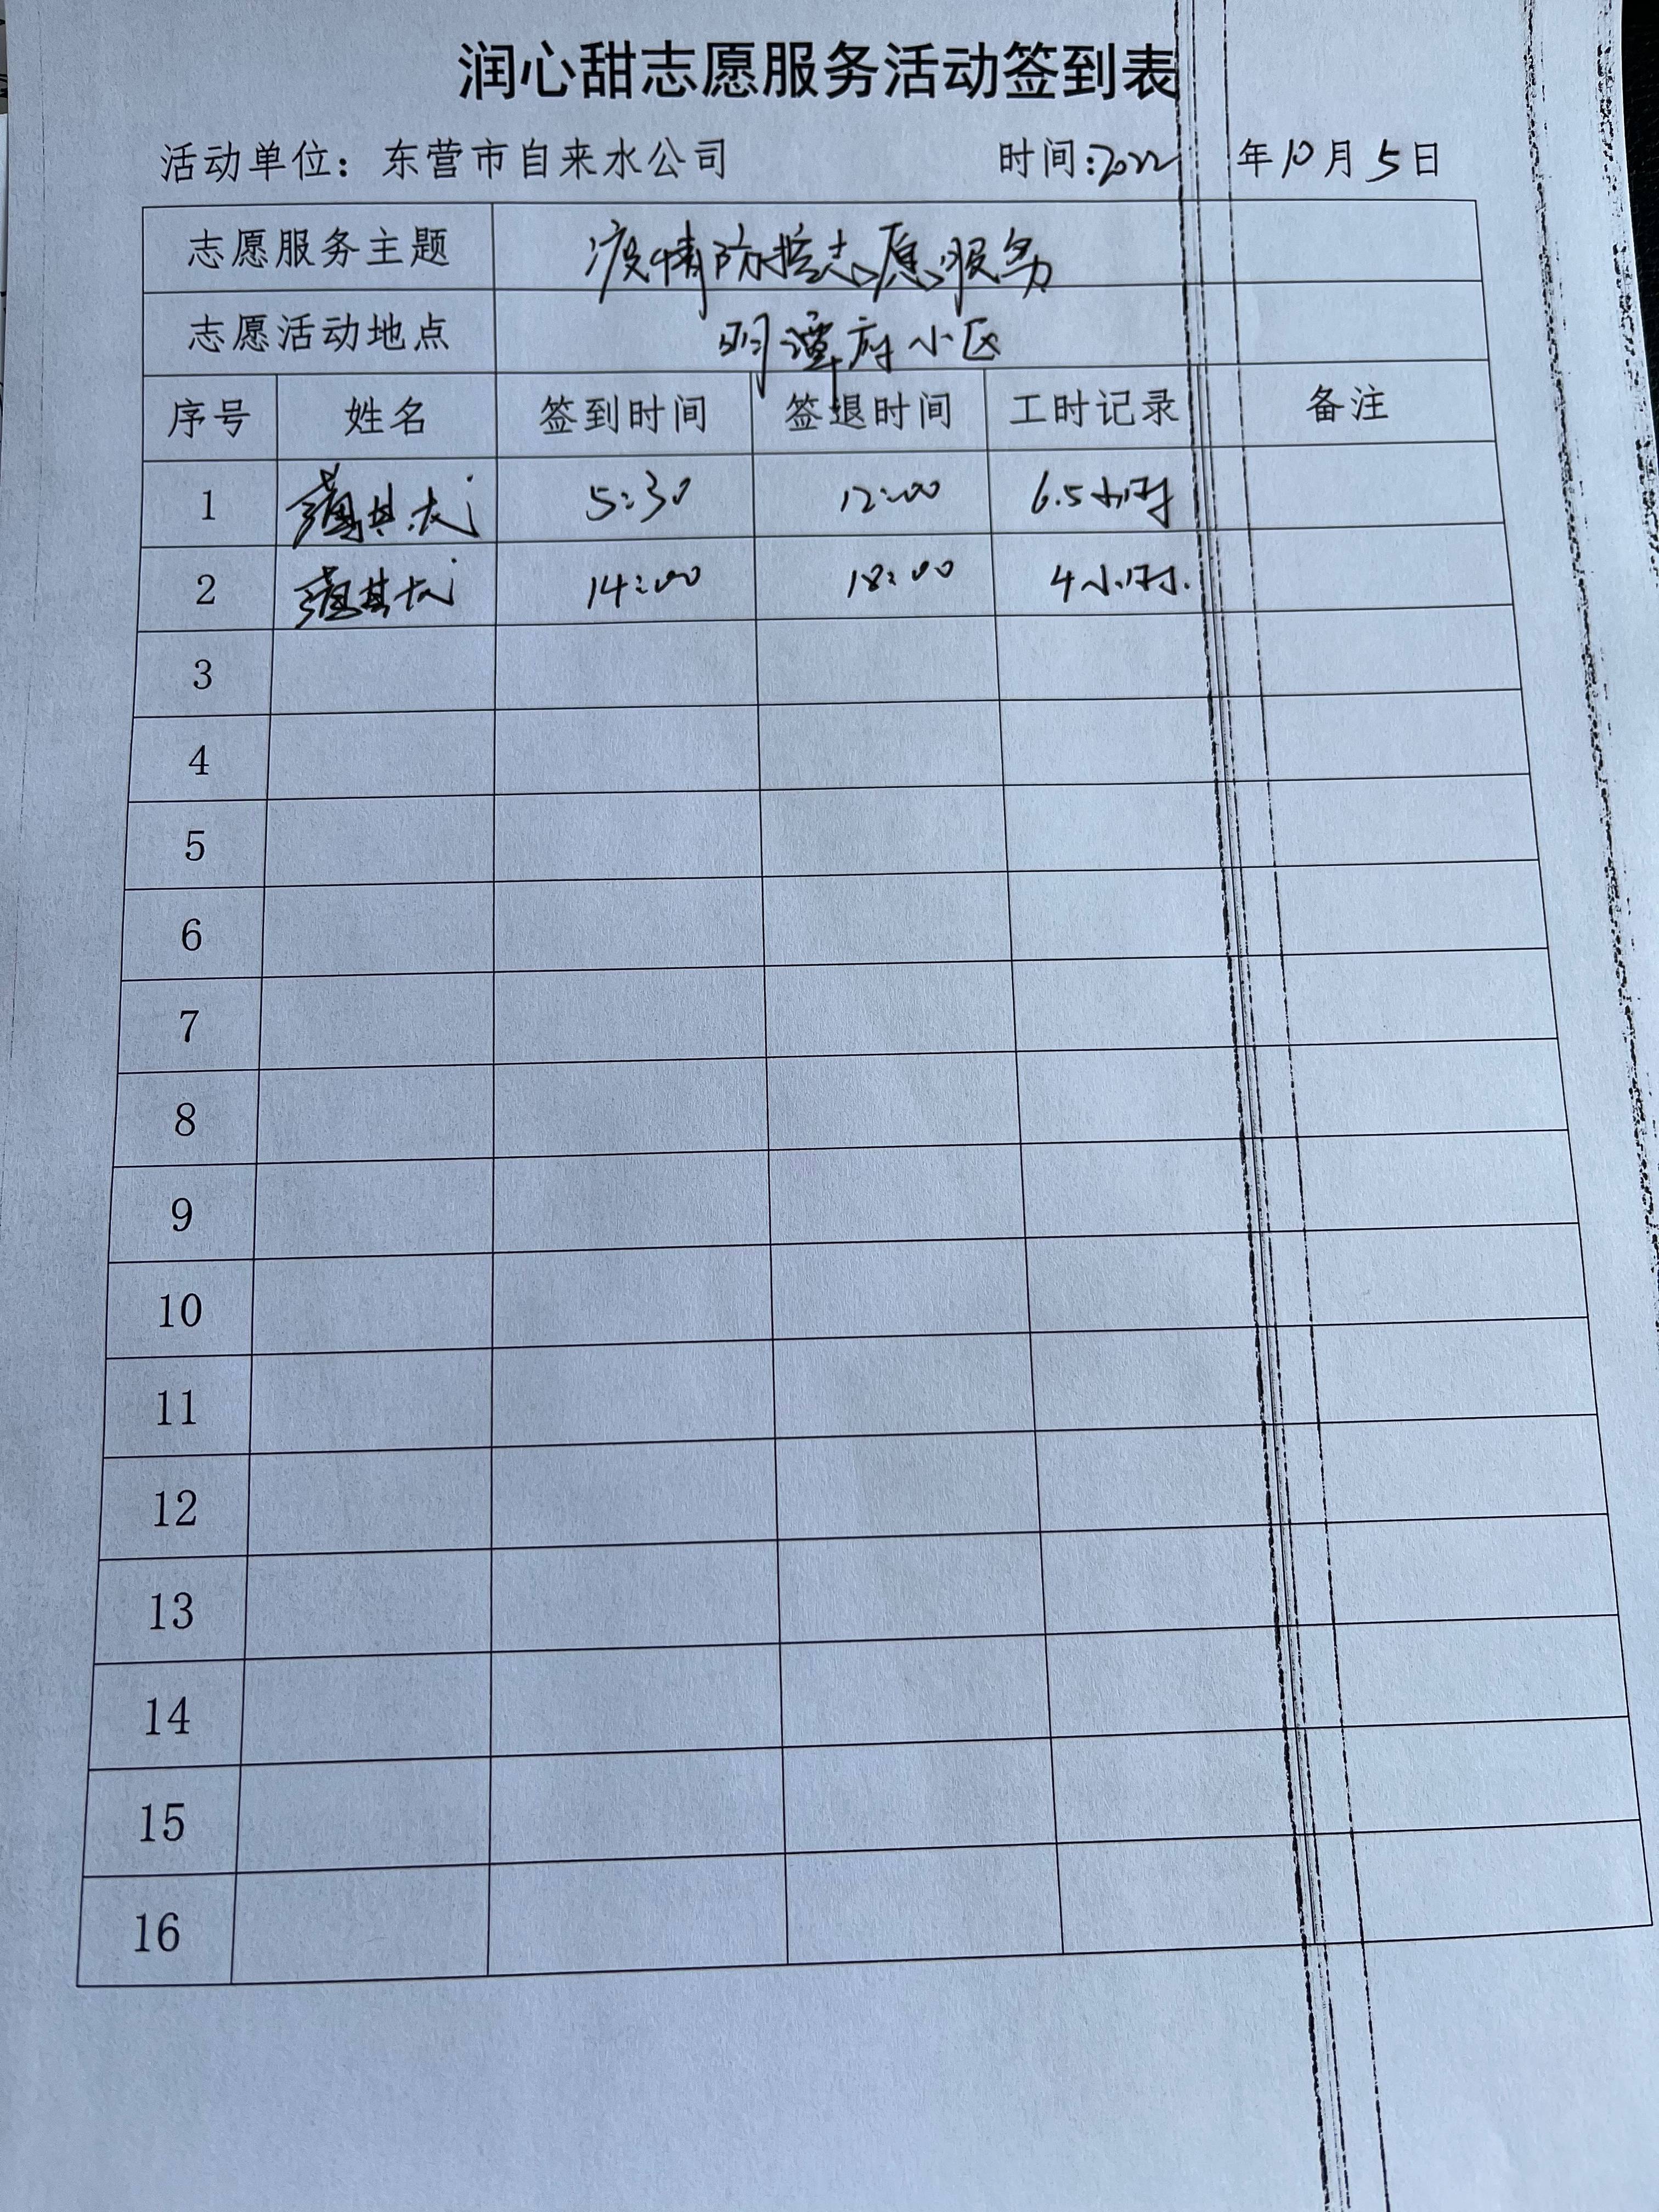 润心甜志愿服务活动签到表
活动单位：东营市自来水公司 时间:2022 年10月5日
志愿服务主题 疫情防控志愿服务
志愿活动地点 明潭府小区
序号 姓名 签到时间 签退时间 工时记录 备注
1 5:30 12:00 6.5小时
2 14:00 18:00 4小时.
3
4
5
6
7
8
9
10
11
12
13
14
15
16